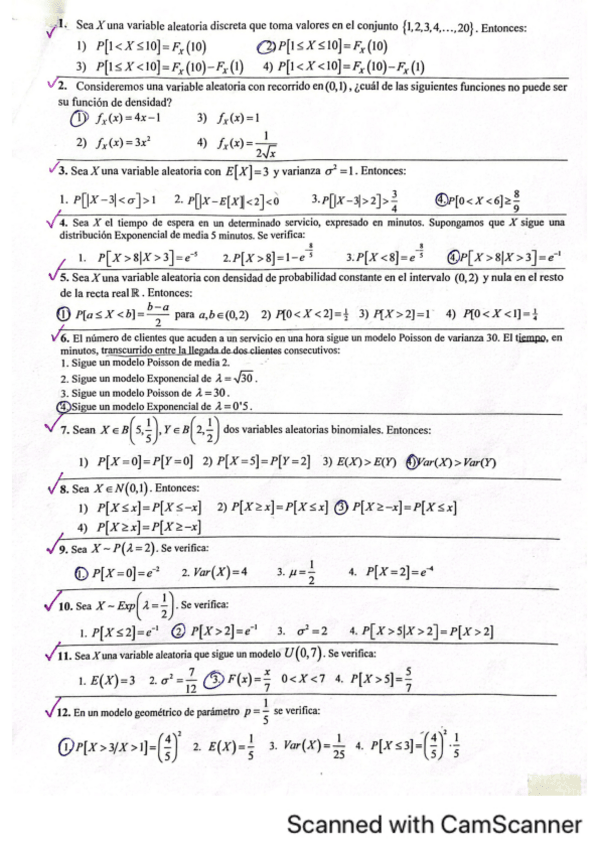 1. Sea X una variable aleatoria discreta que toma valores en el conjunto {1,2,3,4,…,20}. Entonces:
1) P[1 < X ≤ 10] = F_X(10) 2) P[1 ≤ X ≤ 10] = F_X(10)
3) P[1 ≤ X < 10] = F_X(10) − F_X(1) 4) P[1 < X < 10] = F_X(10) − F_X(1)
2. Consideremos una variable aleatoria con recorrido en (0,1), ¿cuál de las siguientes funciones no puede ser
su función de densidad?
1) f_X(x) = 4x − 1 3) f_X(x) = 1
2) f_X(x) = 3x² 4) f_X(x) = 1/(2√x)
3. Sea X una variable aleatoria con E[X] = 3 y varianza σ² = 1. Entonces:
1. P[|X − 3| < σ] > 1 2. P[|X − E[X]| < 2] < 0 3. P[|X − 3| > 2] > 3/4 4. P[0 < X < 6] ≥ 8/9
4. Sea X el tiempo de espera en un determinado servicio, expresado en minutos. Supongamos que X sigue una
distribución Exponencial de media 5 minutos. Se verifica:
1. P[X > 8|X > 3] = e⁻⁵ 2. P[X > 8] = 1 − e^(−8/5) 3. P[X < 8] = e^(−8/5) 4. P[X > 8|X > 3] = e⁻¹
5. Sea X una variable aleatoria con densidad de probabilidad constante en el intervalo (0,2) y nula en el resto
de la recta real ℝ. Entonces:
1) P[a ≤ X < b] = (b−a)/2 para a,b ∈ (0,2) 2) P[0 < X < 2] = 1/2 3) P[X > 2] = 1 4) P[0 < X < 1] = 1/4
6. El número de clientes que acuden a un servicio en una hora sigue un modelo Poisson de varianza 30. El tiempo, en
minutos, transcurrido entre la llegada de dos clientes consecutivos:
1. Sigue un modelo Poisson de media 2.
2. Sigue un modelo Exponencial de λ = √30.
3. Sigue un modelo Poisson de λ = 30.
4. Sigue un modelo Exponencial de λ = 0'5.
7. Sean X ∈ B(5, 1/5), Y ∈ B(2, 1/2) dos variables aleatorias binomiales. Entonces:
1) P[X = 0] = P[Y = 0] 2) P[X = 5] = P[Y = 2] 3) E(X) > E(Y) 4) Var(X) > Var(Y)
8. Sea X ∈ N(0,1). Entonces:
1) P[X ≤ x] = P[X ≤ −x] 2) P[X ≥ x] = P[X ≤ x] 3) P[X ≥ −x] = P[X ≤ x]
4) P[X ≥ x] = P[X ≥ −x]
9. Sea X ~ P(λ = 2). Se verifica:
1. P[X = 0] = e⁻² 2. Var(X) = 4 3. μ = 1/2 4. P[X = 2] = e⁻⁴
10. Sea X ~ Exp(λ = 1/2). Se verifica:
1. P[X ≤ 2] = e⁻¹ 2 P[X > 2] = e⁻¹ 3. σ² = 2 4. P[X > 5|X > 2] = P[X > 2]
11. Sea X una variable aleatoria que sigue un modelo U(0,7). Se verifica:
1. E(X) = 3 2. σ² = 7/12 3. F(x) = x/7 0 < X < 7 4. P[X > 5] = 5/7
12. En un modelo geométrico de parámetro p = 1/5 se verifica:
1) P[X > 3/X > 1] = (4/5)² 2. E(X) = 1/5 3. Var(X) = 1/25 4. P[X ≤ 3] = (4/5)² · 1/5
Scanned with CamScanner